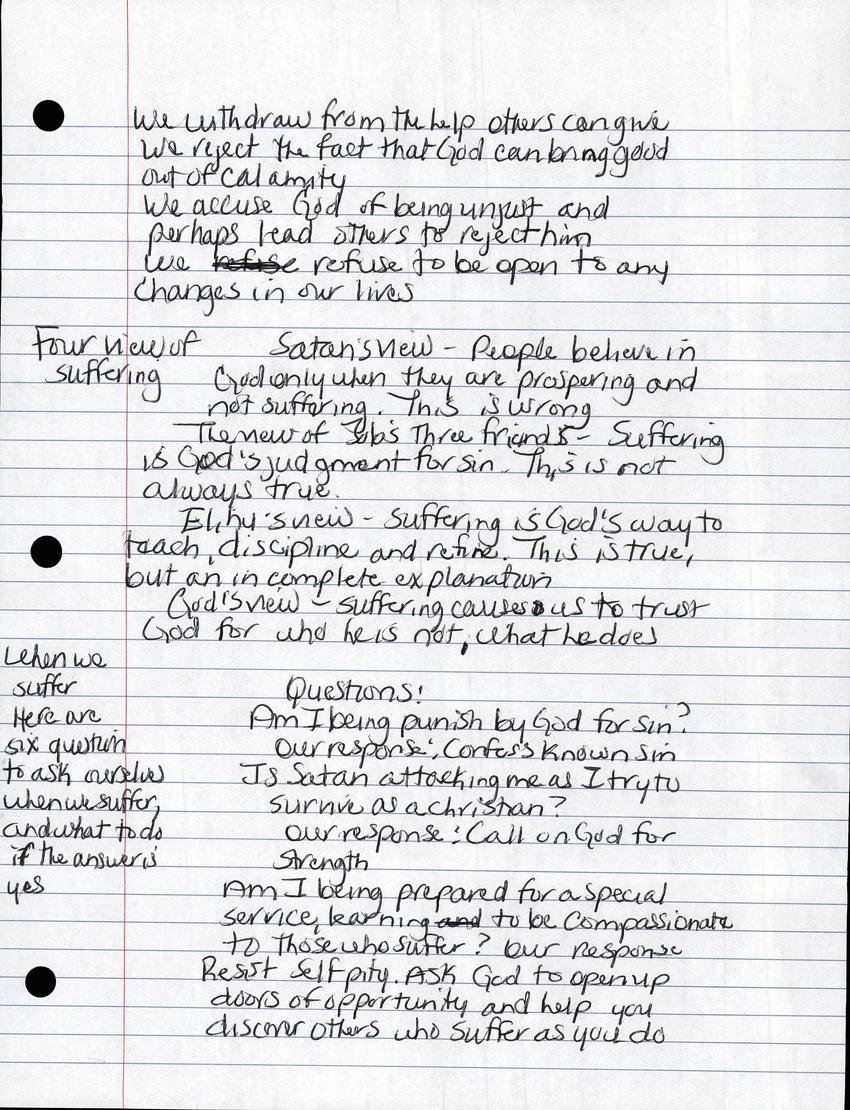 We withdraw from the help others can give
We reject the fact that God can bring good
out of calamity
We accuse God of being unjust and
perhaps lead others to reject him
We refuse refuse to be open to any
Changes in our lives
Four view of
suffering
Satan's view - People believe in
God only when they are prospering and
not suffering. This is wrong
The view of Job's Three friends - Suffering
is God's judgment for sin. This is not
always true.
Elihu's view - suffering is God's way to
teach, discipline and refine. This is true,
but an in complete explanation
God's view - suffering causes us to trust
God for who he is not, what he does
When we
suffer
Here are
six question
to ask ourselves
when we suffer,
and what to do
if the answer is
yes
Questions:
Am I being punish by God for sin?
Our response: Confess known sin
Is Satan attacking me as I try to
survive as a christian?
Our response: Call on God for
Strength
Am I being prepared for a special
service, learning and to be Compassionate
to those who suffer? Our response
Resist self pity. Ask God to open up
doors of opportunity and help you
discover others who suffer as you do